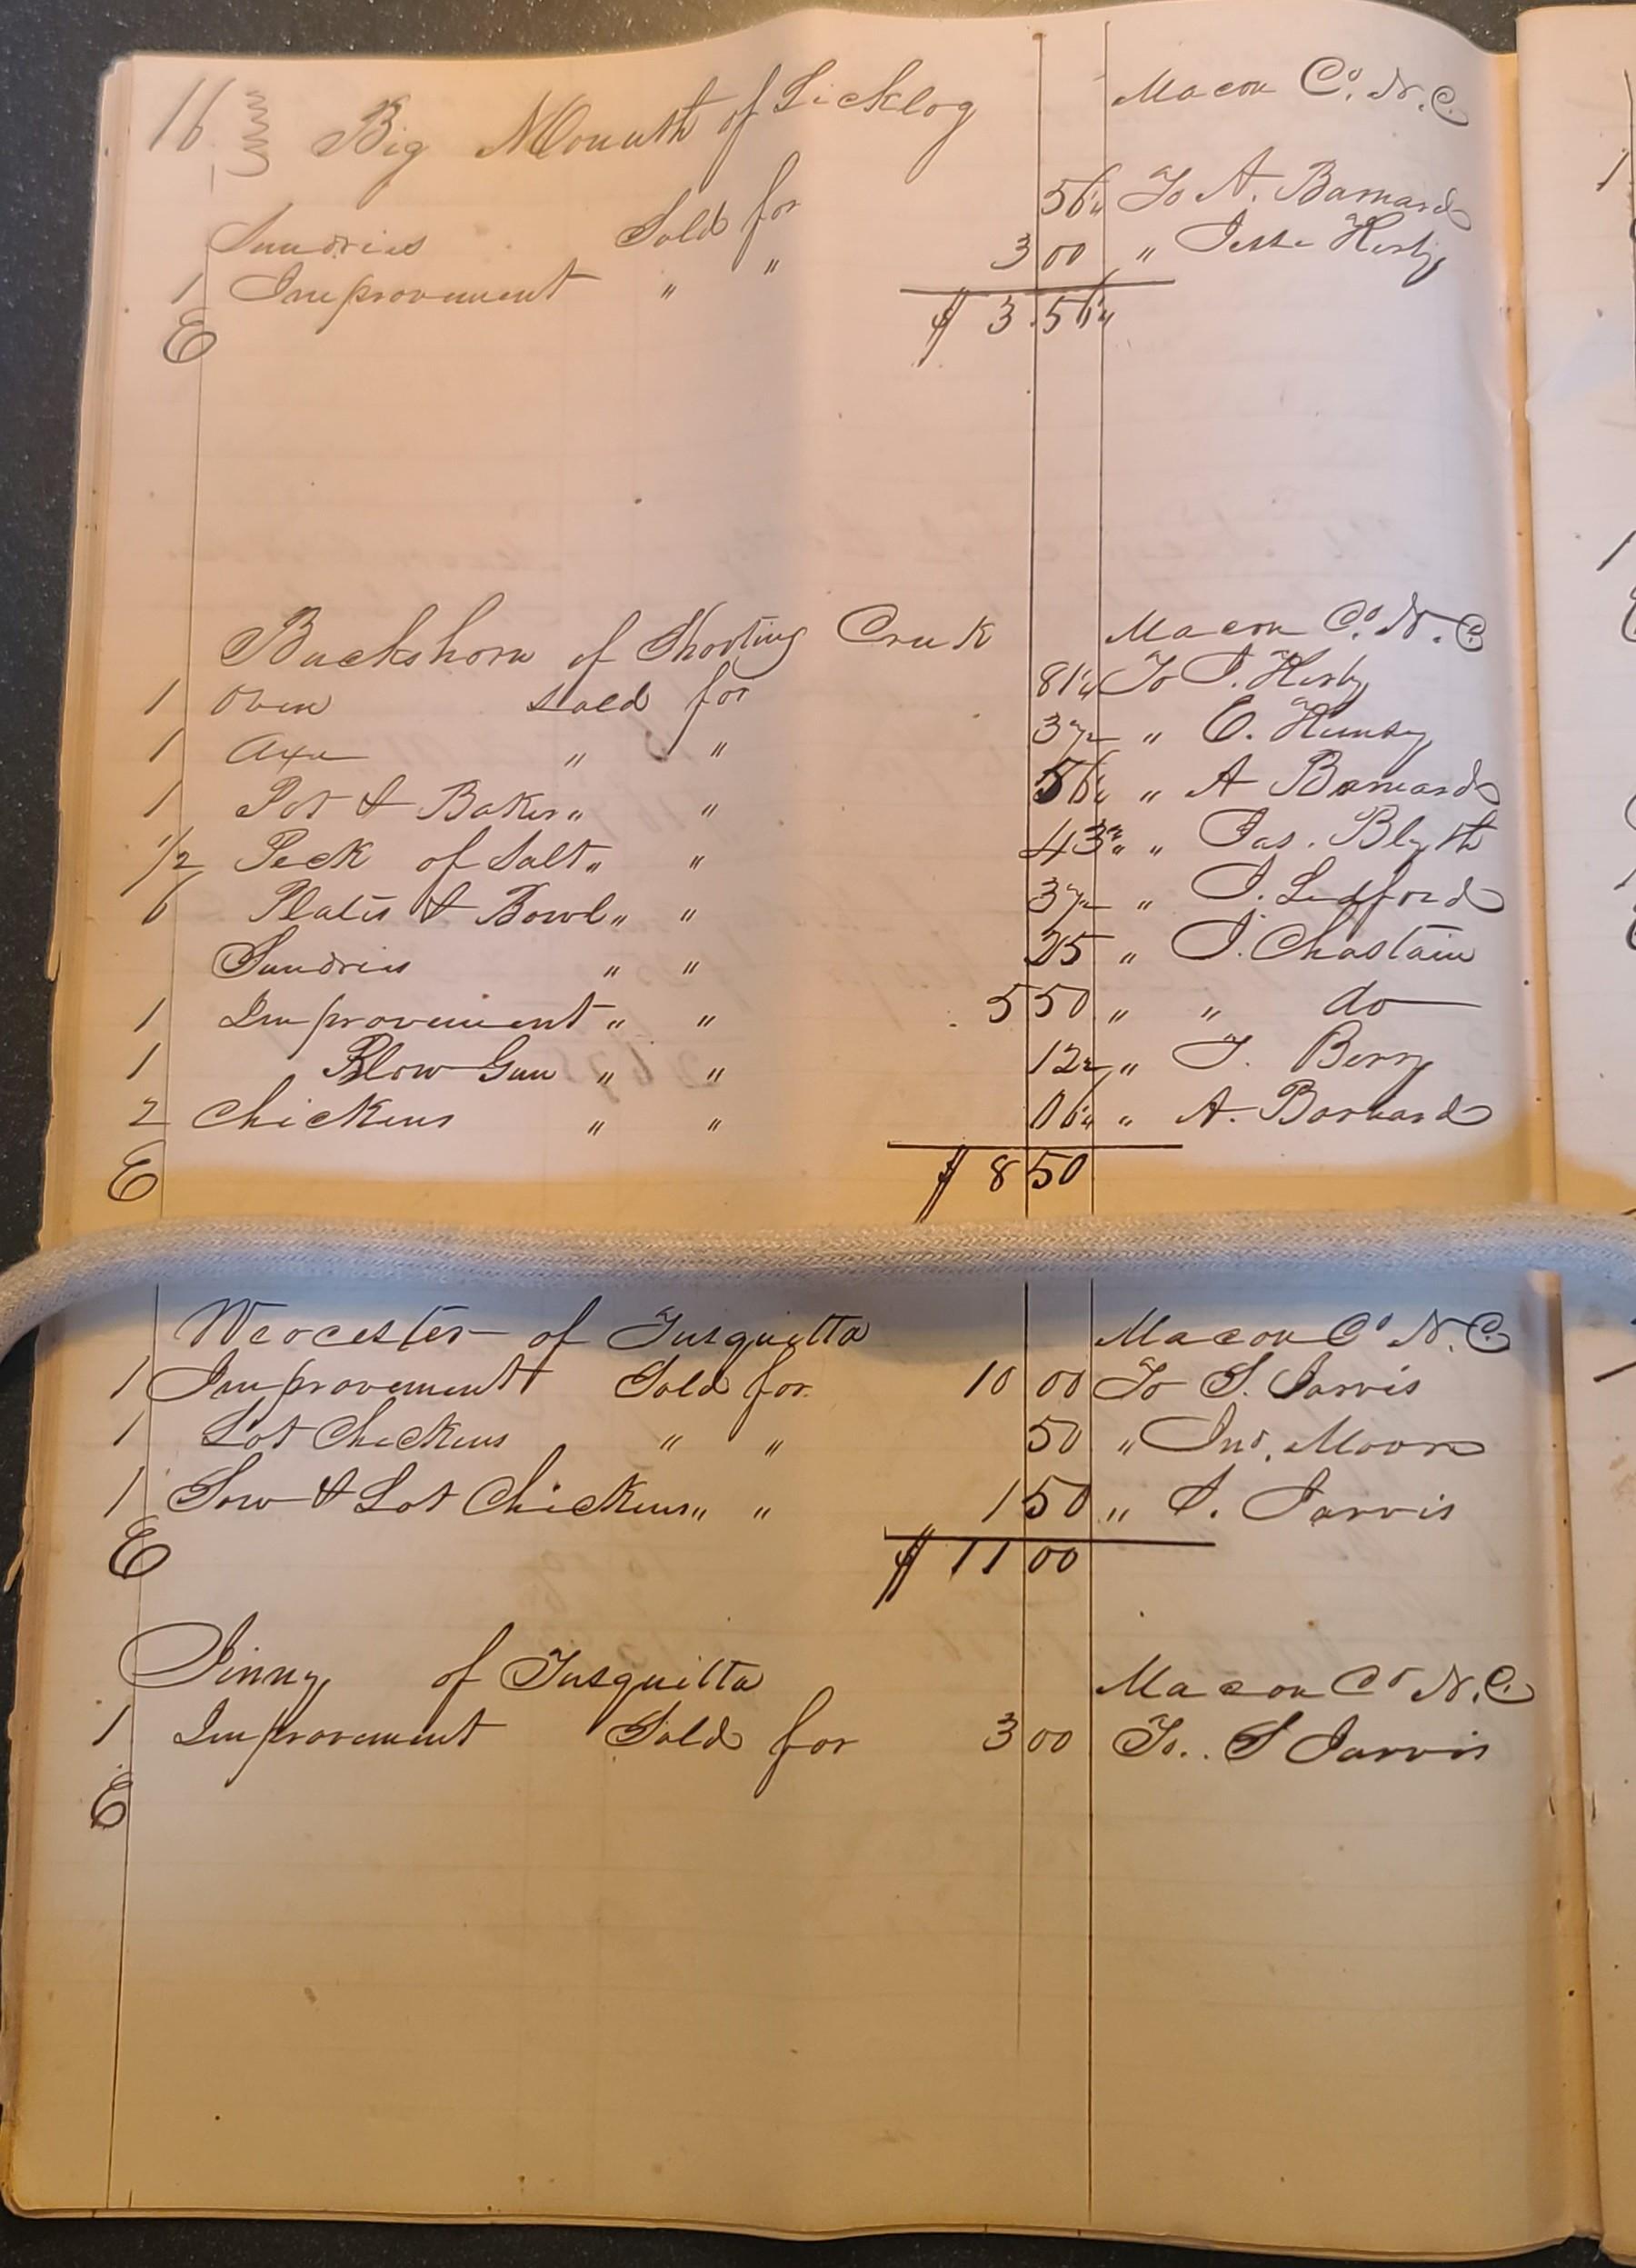 16 Big Mouuth of Licklog Macon Co. N.C.
Sundries Sold for 56¼ To A. Barnard
1 Improvement " " 3 00 " Jesse Kirby
E $ 3.56¼
Buckshorn of Shooting Creek Macon Co. N.C.
1 Oven sold for 81¼ To J. Kirby
1 Axe " " 37½ " E.
1 Pot & Baker " " 56¼ " A Barnard
1/2 Peck of Salt " " 43¾ " Jas. Blyth
6 Plates & Bowl " " 37½ " J. Ledford
Sundries " " 25 " J. Chastain
1 Improvement " " 5 50 " " do
1 Blow Gun " " 12½ " T. Berry
2 Chickens " " 06¼ " A. Barnard
E $ 8 50
Worcester of Tusquitta Macon Co N.C.
1 Improvement Sold for 10 00 To S. Jarvis
1 Lot Chickens " " 50 " Jno. Moore
1 Sow & Lot Chickens " " 1 50 " S. Jarvis
E $ 11 00
Jinny of Tusquitta Macon Co N.C.
1 Improvement Sold for 3 00 To.. S Jarvis
E